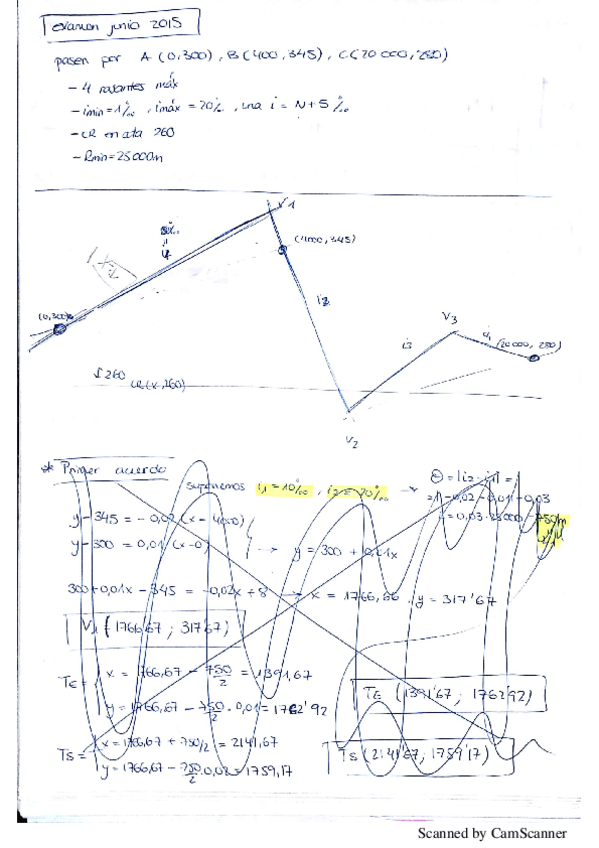 examen junio 2015
pasen por A (0,300), B(400,345), C(20 000, 280)
- 4 rasantes máx
- imin = 1‰, imáx = 20‰, una i = N+5 ‰
- CR en cota 260
- Rmin = 25000m
V1
(4000,345)
(0,300)
i2
V3
i3
(20 000, 280)
260
CR(x,260)
V2
* Primer acuerdo
suponemos i1 = 10‰, i2 = 20‰ → θ = |i2 - i1| =
750m
y - 345 = - 0,02 (x - 4000)
y - 300 = 0,01 (x-0) → y = 300 + 0,01x
300 + 0,01x - 345 = -0,02x + 8 → x = 1766,66 , y = 317'67
V1 = (1766,67 ; 317'67)
TE = x = 1766,67 - 750/2 = 1391,67
y = 1766,67 - 750/2 · 0,01 = 1762'92
TE (1391'67 ; 1762'92)
TS = x = 1766,67 + 750/2 = 2141,67
y = 1766,67 - 750/2 · 0,02 = 1759,17
TS (2141'67 ; 1759'17)
Scanned by CamScanner